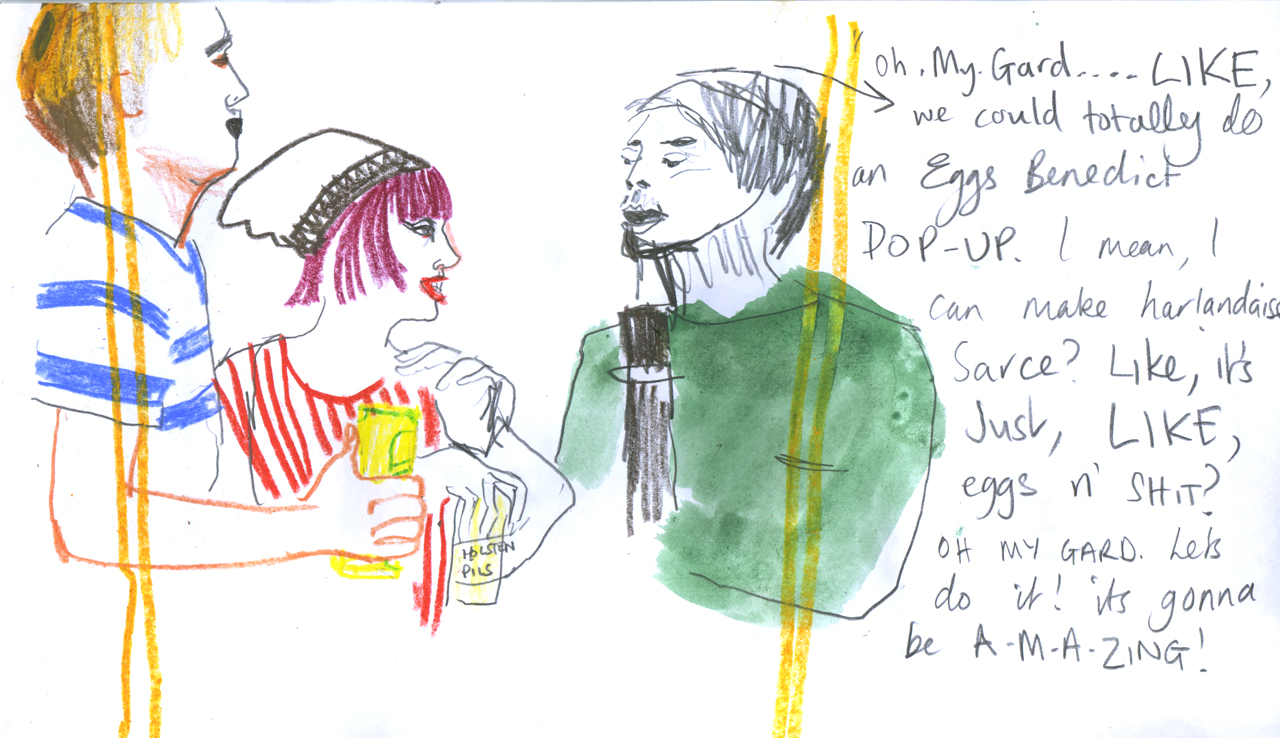 Oh. My. Gard..... LIKE,
we could totally do
an Eggs Benedict
POP-UP. I mean, I
can make harlandaise
Sarce? Like, it's
Just, LIKE,
eggs n' SHIT?
OH MY GARD. Lets
do it! its gonna
be A-M-A-ZING!
HOLSTEN
PILS